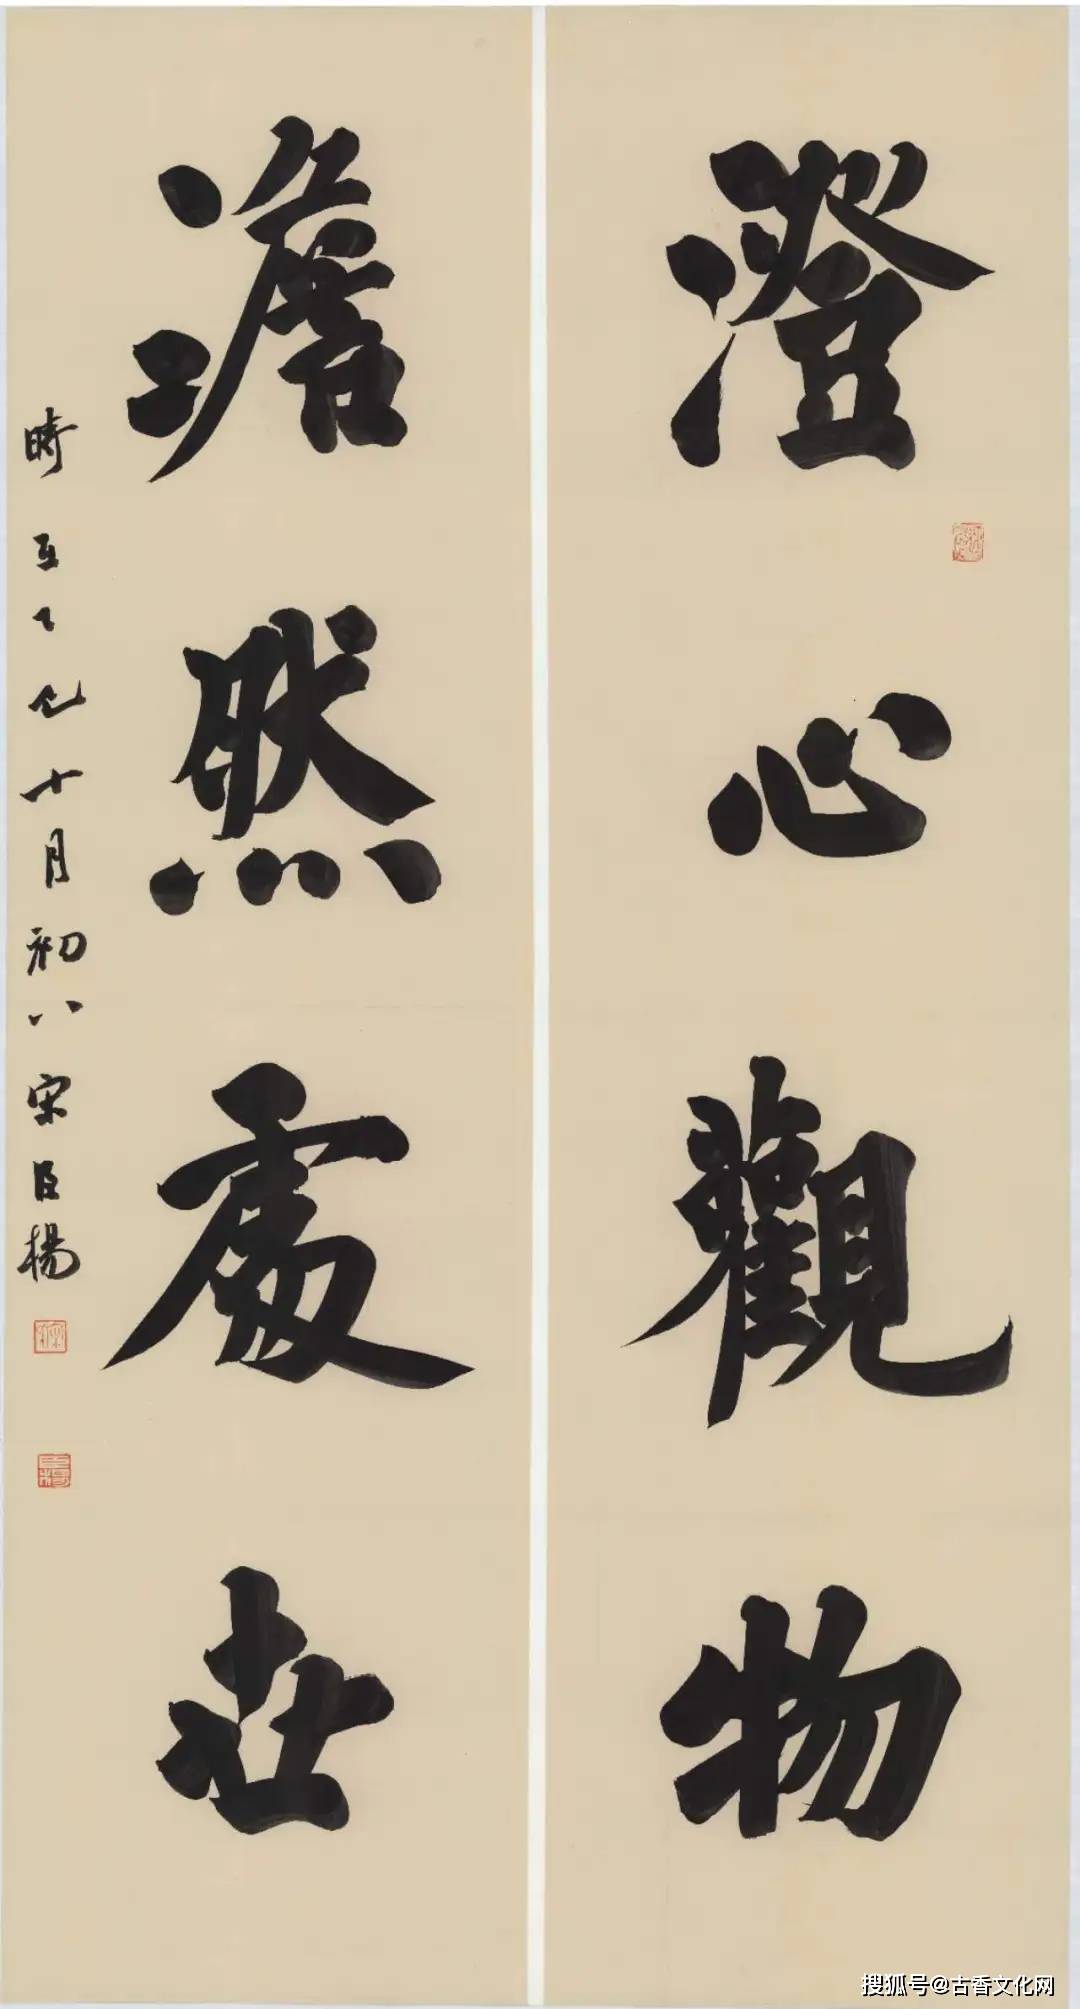 澄心觀物
澹然處世
時在乙巳十月初八宋臣楊
搜狐号@古香文化网